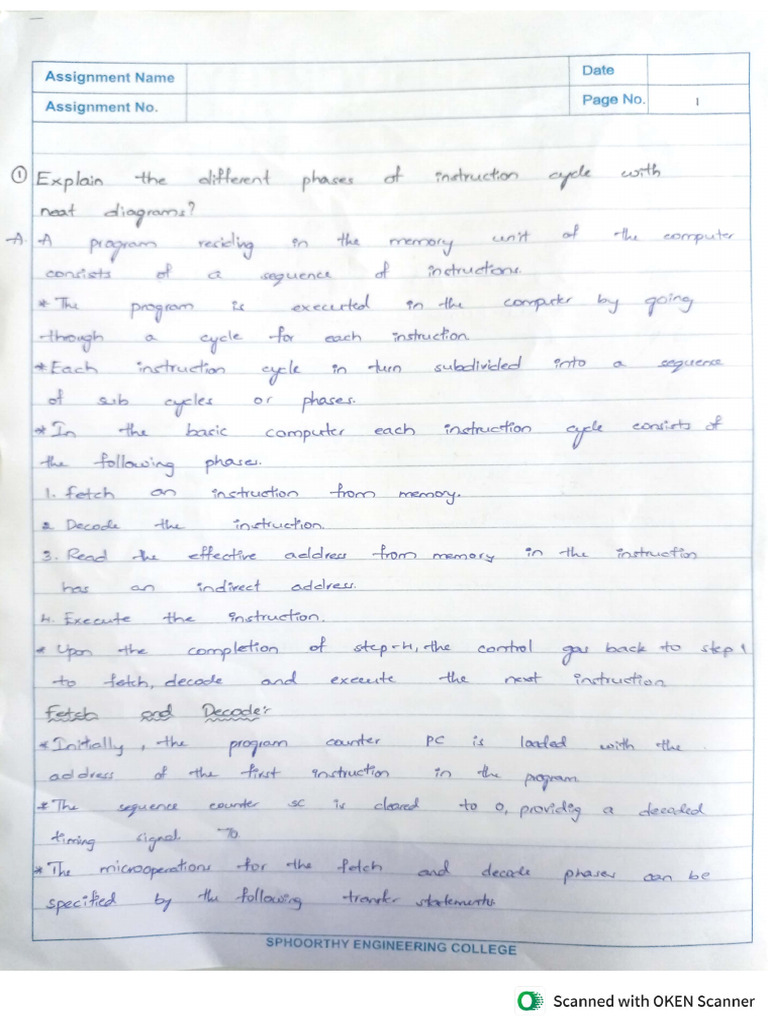 Assignment Name
Date
Assignment No.
Page No. 1
① Explain the different phases of instruction cycle with
neat diagrams?
A. A program reciding in the memory unit of the computer
consists of a sequence of instructions.
* The program is executed in the computer by going
through a cycle for each instruction.
* Each instruction cycle in turn subdivided into a sequence
of sub cycles or phases.
* In the basic computer each instruction cycle consists of
the following phases.
1. Fetch an instruction from memory.
2. Decode the instruction.
3. Read the effective address from memory in the instruction
has an indirect address.
4. Execute the instruction.
* Upon the completion of step-4, the control goes back to step 1
to fetch, decode and execute the next instruction.
Fetch and Decode:
* Initially, the program counter PC is loaded with the
address of the first instruction in the program.
* The sequence counter SC is cleared to 0, providig a decoded
timing signal To.
* The microoperations for the fetch and decode phases can be
specified by the following transfer statements.
SPHOORTHY ENGINEERING COLLEGE
Scanned with OKEN Scanner